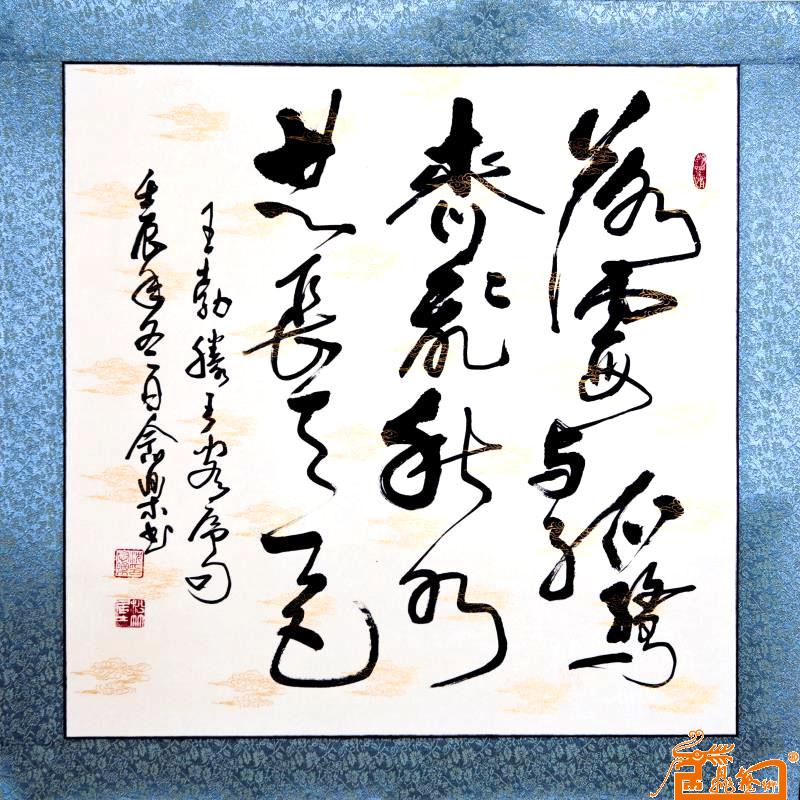 落霞与孤鹜
齐飞秋水
共长天一色
王勃滕王阁序句
壬辰年冬月余